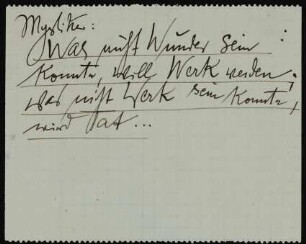 Mystiker:
Was nicht Wunder sein
konnte, will Werk werden,
was nicht Werk sein konnte,
wird Tat ...